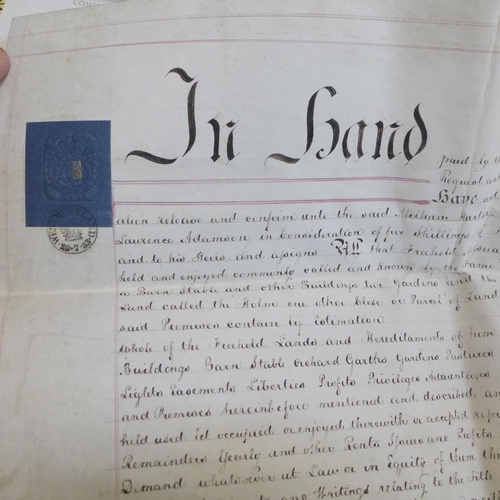 In Hand
paid by
Request and
Have
ation release and confirm unto the said Abraham
Laurence Adamson in Consideration of five Shillings
and to his Heirs and assigns All that Freehold
held and enjoyed commonly called and known by the name
a Barn Stable and other Buildings two Gardens and
Land called the Holm one other Close or Parcel of Land
said Premises contain by Estimation
whole of the Freehold Lands and Hereditaments of him
Buildings Barn Stable Orchard Garths Gardens Pastures
Lights Easements Liberties Profits Privileges Advantages
and Premises hereinbefore mentioned and described, and
held used occupied or enjoyed therewith or accepted
Remainders Yearly and other Rents Issues and Profits
Demand whatsoever at Law or in Equity of them
and Writings relating to the Title